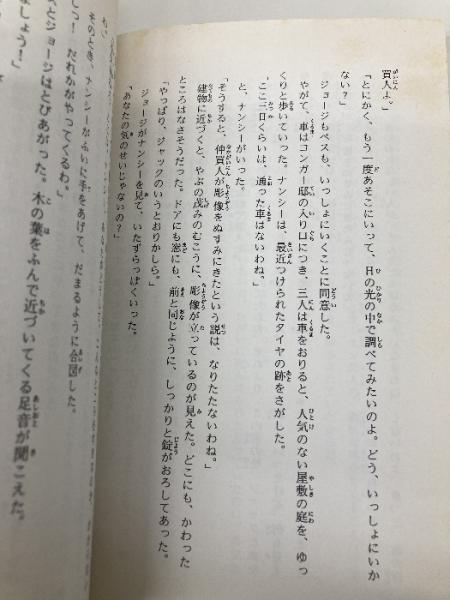 買人よ。」
「とにかく、もう一度あそこにいって、日の光の中で調べてみたいのよ。どう、いっしょにいか
ない?」
ジョージもベスも、いっしょにいくことに同意した。
やがて、車はコンガー邸の入り口につき、三人は車をおりると、人気のない屋敷の庭を、ゆっ
くりと歩いていった。ナンシーは、最近つけられたタイヤの跡をさがした。
「ここ三日くらいは、通った車はないわね。」
と、ナンシーがいった。
「そうすると、仲買人が彫像をぬすみにきたという説は、なりたたないわね。」
建物に近づくと、やぶの茂みのむこうに、彫像が立っているのが見えた。どこにも、かわった
ところはなさそうだった。ドアにも窓にも、前と同じように、しっかりと錠がおろしてあった。
「やっぱり、ジャックのいうとおりかしら。」
ジョージがナンシーを見て、いたずらっぽくいった。
「あなたの気のせいじゃないの?」
そのとき、ナンシーがふいに手をあげて、だまるように合図した。
しっ! だれかがやってくるわ。」
スとジョージはとびあがった。木の葉をふんで近づいてくる足音が聞こえた。
ましょう!」